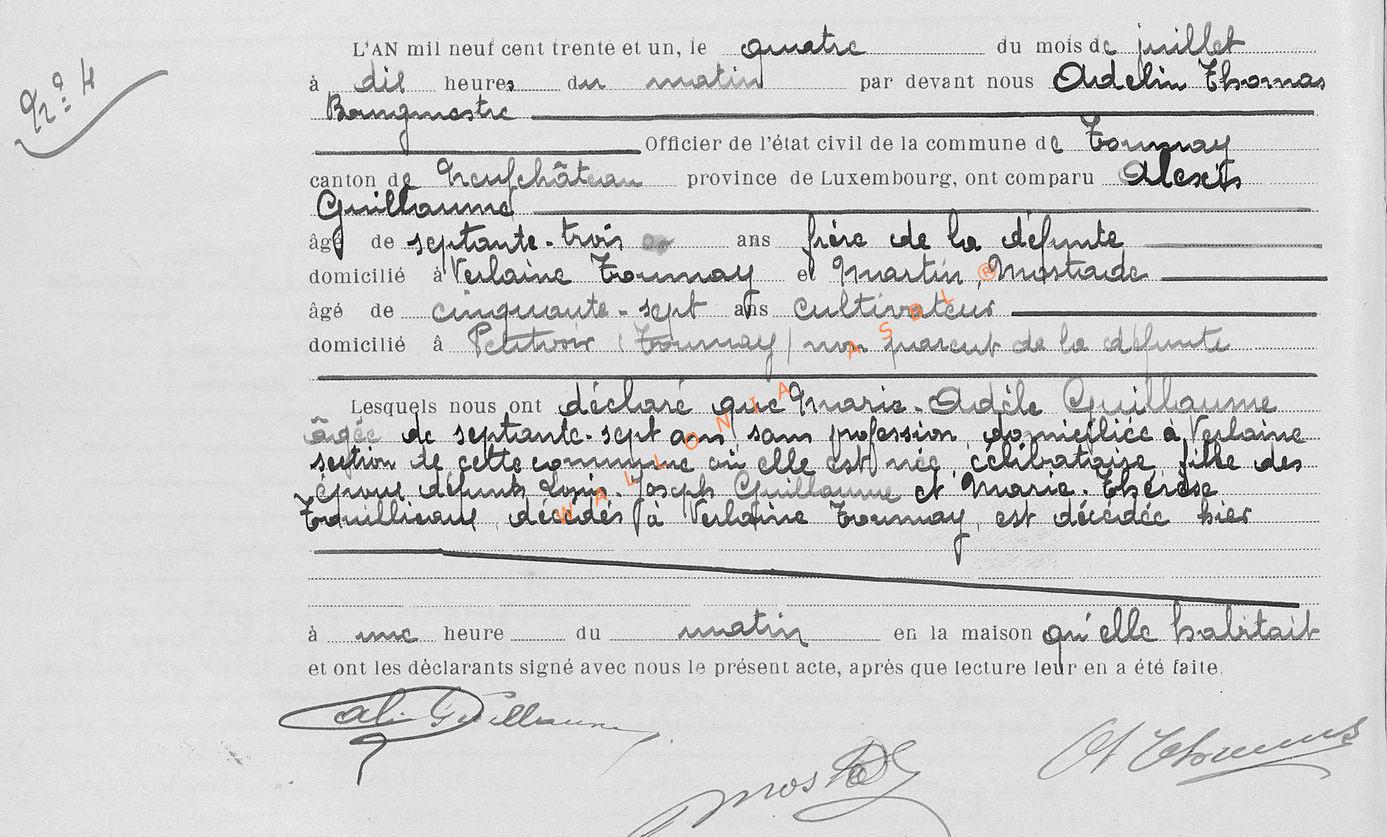 N° 4
L'AN mil neuf cent trente et un, le quatre du mois de juillet
à dix heures du matin par devant nous Adelin Thomas
Bourgmestre
Officier de l'état civil de la commune de Tournay
canton de Neufchâteau province de Luxembourg, ont comparu Alexis
Guillaume
âgé de septante-trois ans frère de la défunte
domicilié à Verlaine Tournay et Martin Mostade
âgé de cinquante-sept ans cultivateur
domicilié à Petitvoir (Tournay) non parent de la défunte
Lesquels nous ont déclaré que Marie-Adèle Guillaume
âgée de septante-sept ans, sans profession, domiciliée à Verlaine
section de cette commune où elle est née, célibataire, fille des
époux défunts Louis-Joseph Guillaume et Marie-Thérèse
décédés à Verlaine Tournay, est décédée hier
à une heure du matin en la maison qu'elle habitait
et ont les déclarants signé avec nous le présent acte, après que lecture leur en a été faite.
Guillaume
A Thomas
WALLONIA ASBL ®